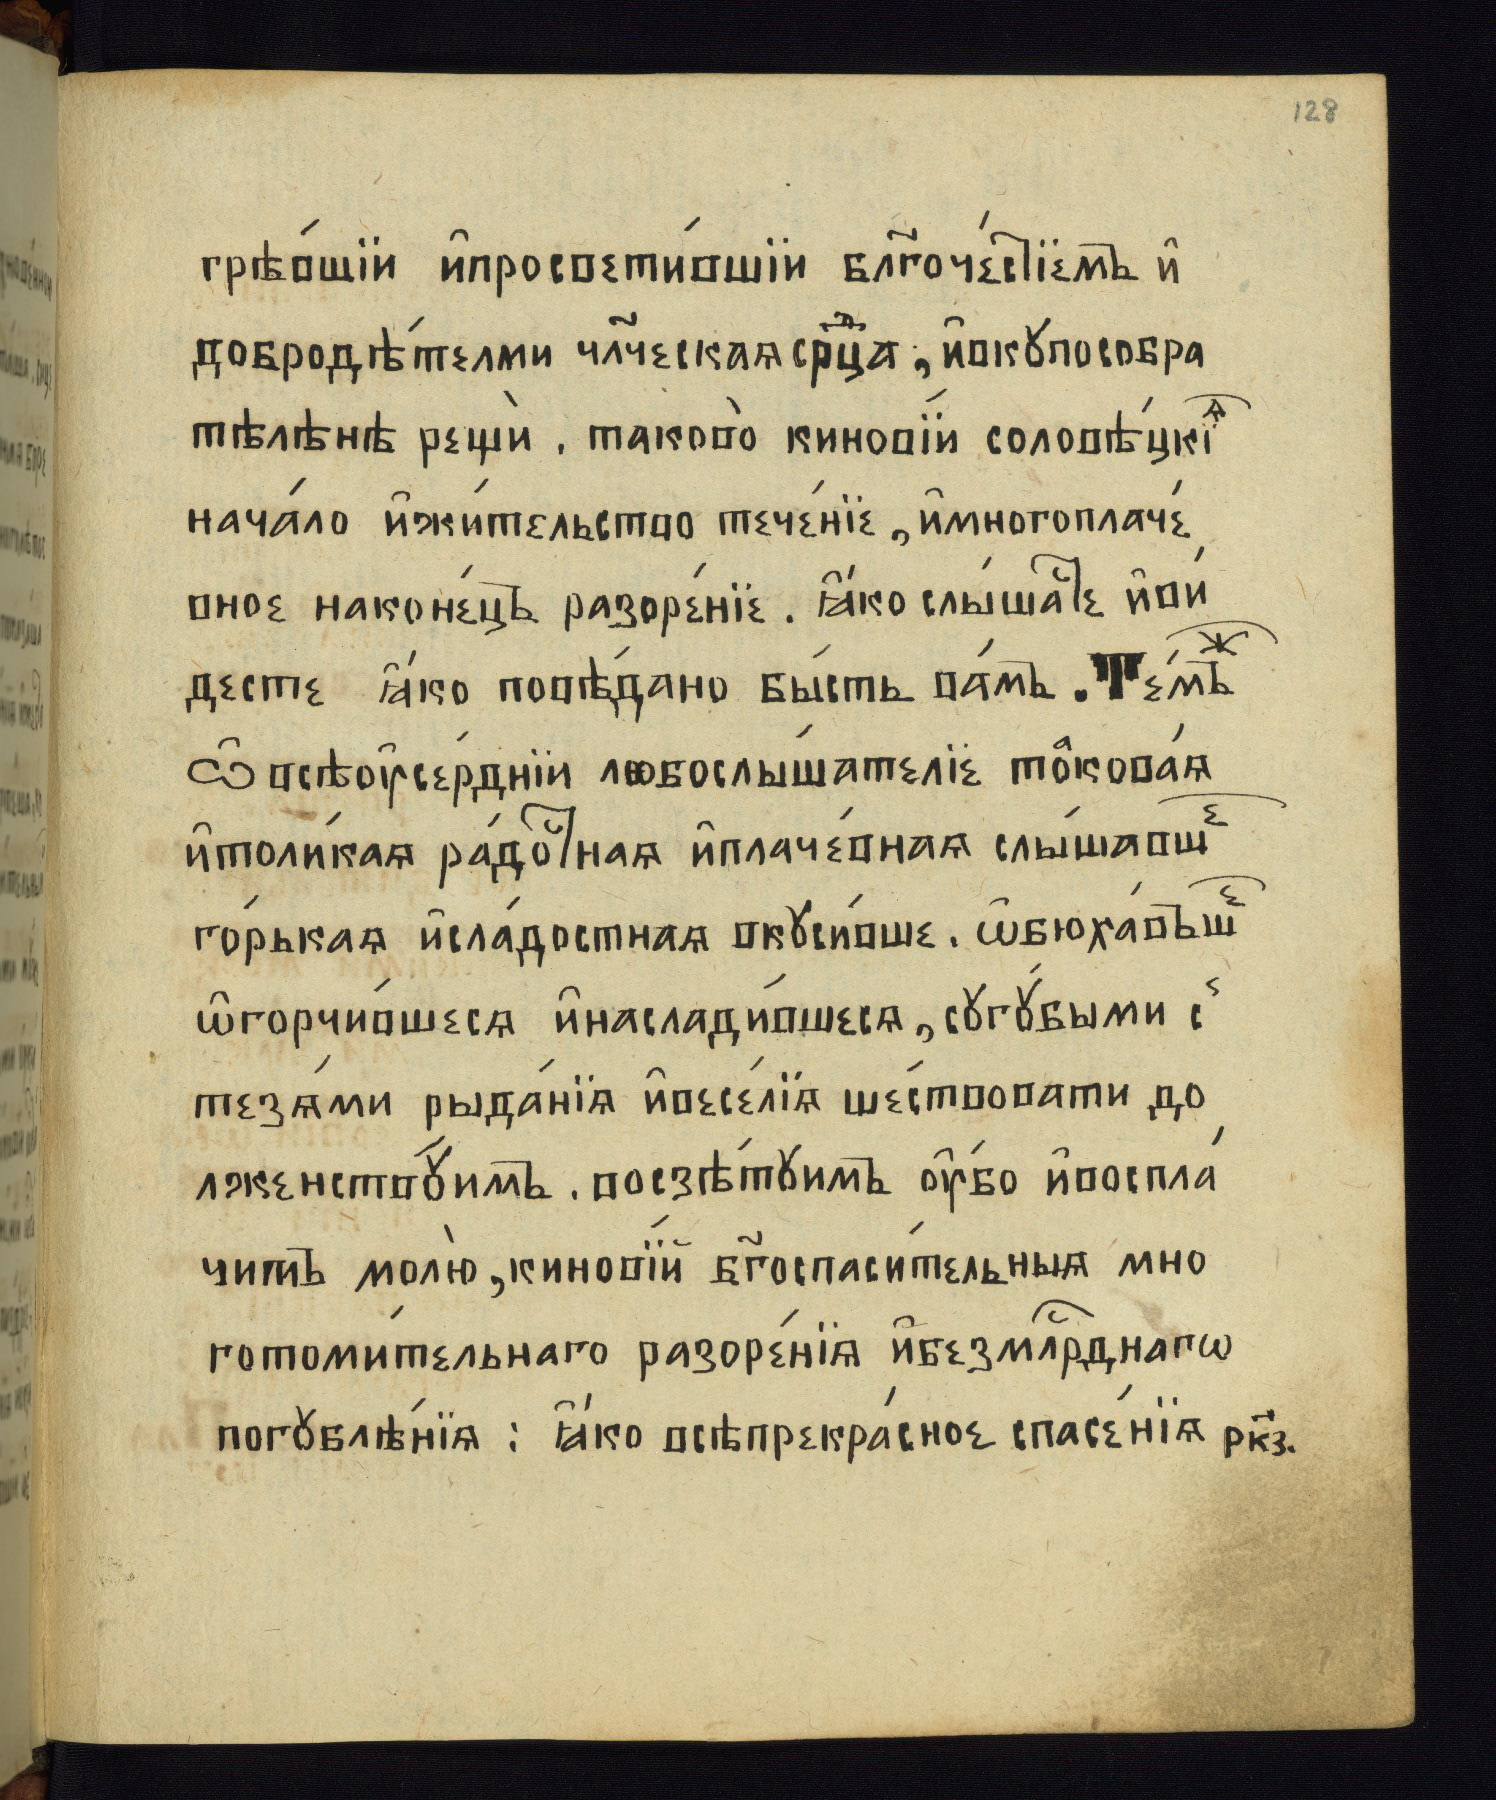 128
грѣ́вшїи и҆просвети́вшїи бл҃гоче́стїемъ и҆
добродѣ́телми чл҃ческаѧ ср҃дца , и҆вкꙋпособра
тѣлѣнѣ рещѝ . таково̀ кинові́и соловѣ́цкїѧ
нача́ло и҆жи́тельство тече́нїе , и҆многоплаче́
вное наконе́цъ разоре́нїе . ꙗ҆́ко слы́шасте и҆ви́
десте ꙗ҆́ко повѣ́дано бы́сть ва́мъ . Те́мъж
ѽ всѣѹ҆се́рднїи любослы́шателїе такова́ѧ
и҆толи́каѧ ра́достнаѧ и҆плаче́внаѧ слы́шавше
го́рькаѧ и҆сла́достнаѧ вкꙋси́вше . ѡ҆бюха́въше
ѡ҆горчи́вшесѧ и҆наслади́вшесѧ , сꙋгꙋ́быми с
тезѧ́ми рыда́нїѧ и҆весе́лїѧ ше́ствовати до
лженствꙋ́имъ . восзѣ́тꙋимъ ѹ҆́бо и҆воспла́
чимъ молю̀ , кинові́й бг҃оспаси́тельныѧ мно
готоми́тельнаго разоре́нїѧ и҆безмлⷭ҇рднагѡ
погꙋблѣ́нїѧ : ꙗ҆́ко всѣпрекра́сное спасе́нїѧ рк҃з.